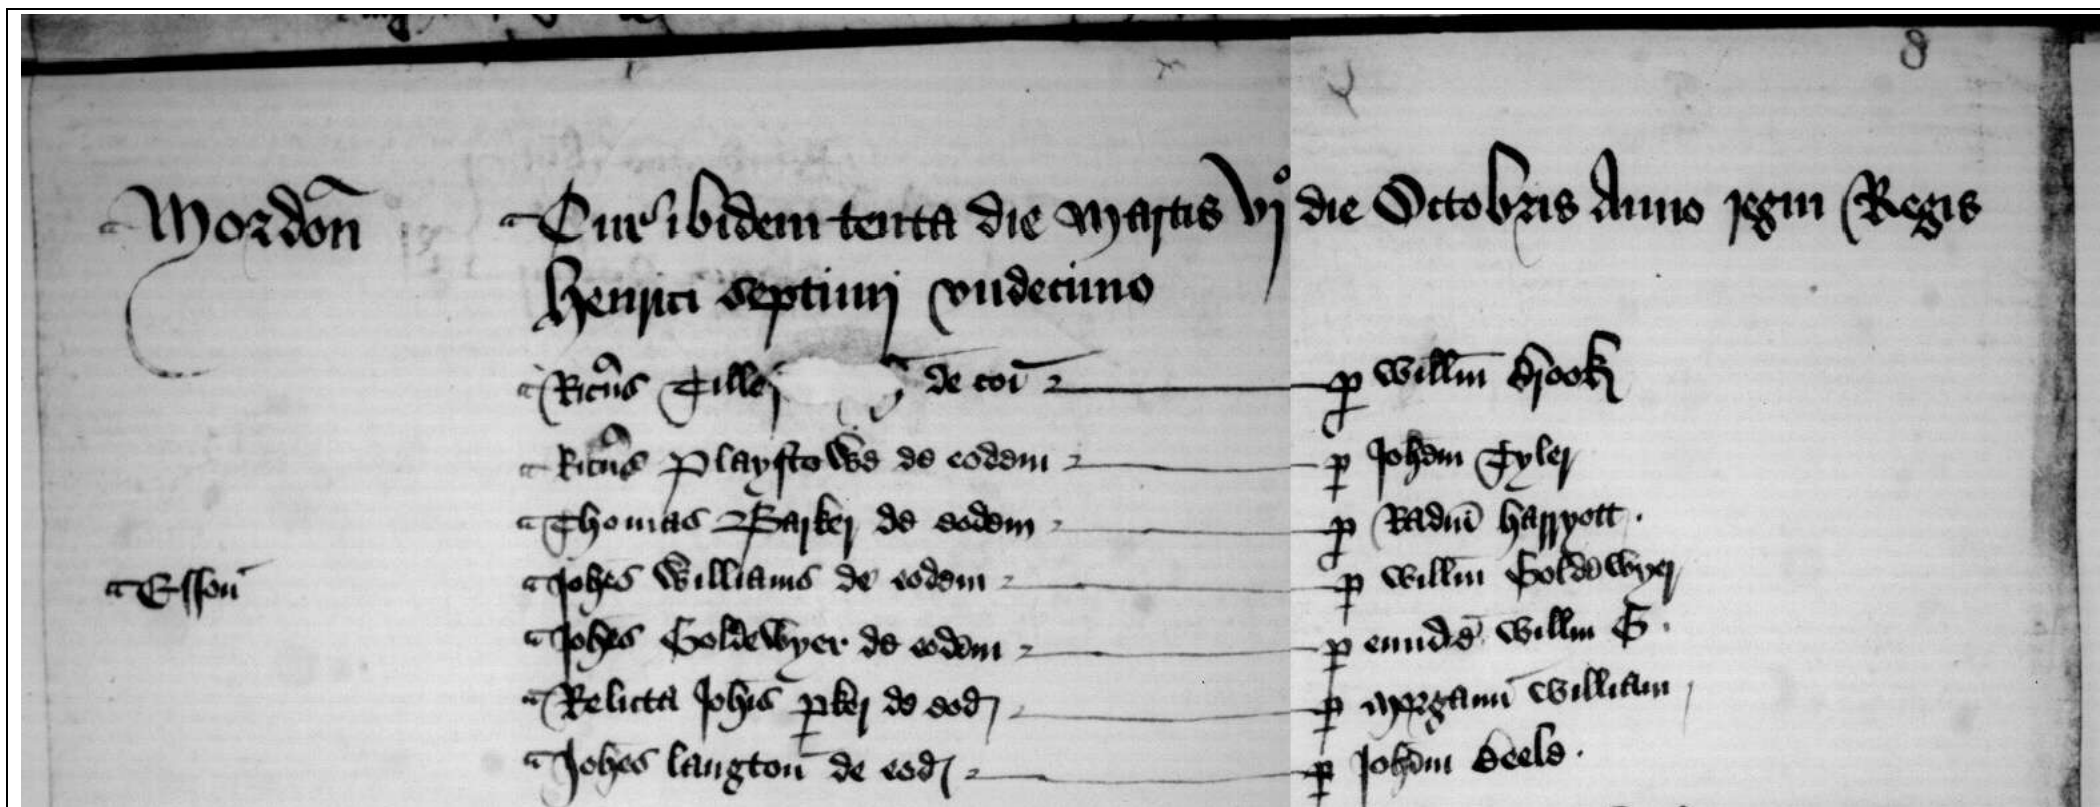 Mordon Cur ibidem tenta die Martis vjo die Octobris Anno regni Regis
henrici septimi vndecimo
Ricus Tiller de coi p Willm Brook
Ricus Playstowe de eodem p Johem Tyler
Thomas Barker de eodem p Radm harryott
Esson Johes Williams de eodem p Willm Goldewyer
Johes Goldewyer de eodem p eundem Willm G
Relicta Johis pker de eod p Morganu William
Johes langton de eod p Johem Beele